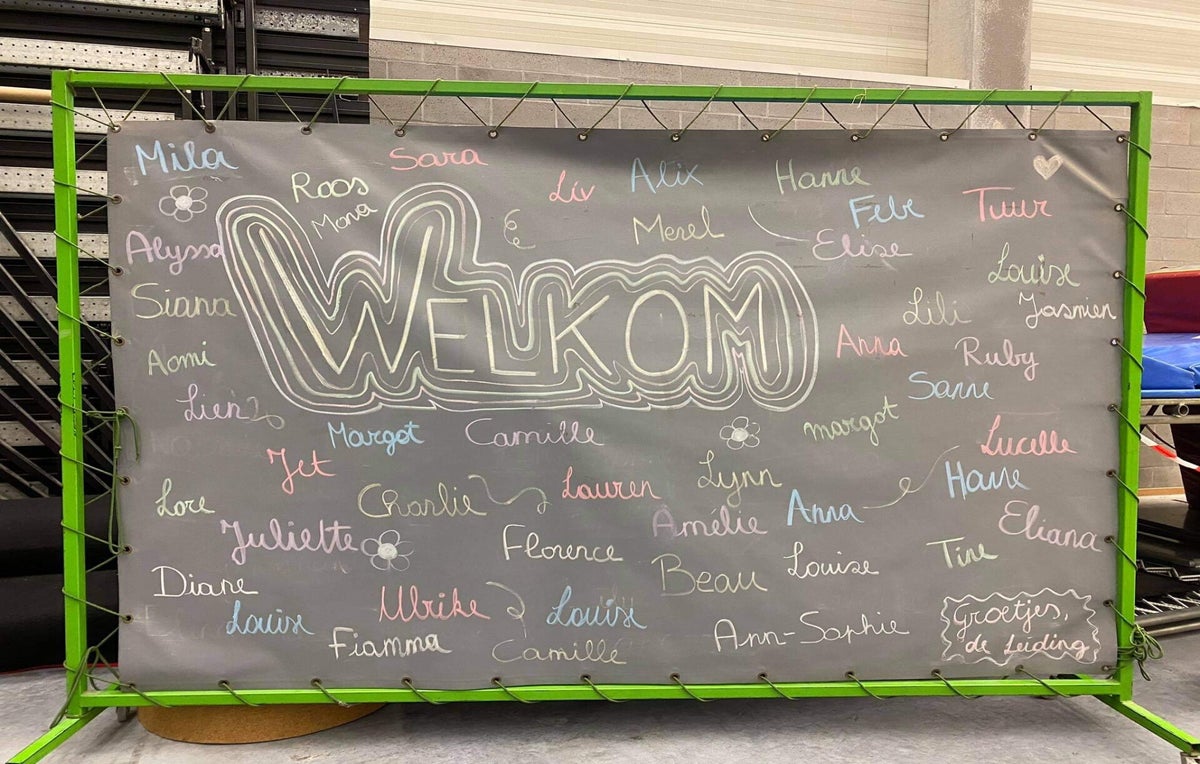 Mila
Sara
Roos
Mona
Liv
Alix
Hanne
Febe
Tuur
Merel
Elise
Alyssa
WELKOM
Louise
Siana
Lili
Jasmien
Aomi
Anna
Ruby
Sanne
Lien
Margot
Camille
margot
Lucille
Jet
Lynn
Hanne
Lore
Charlie
Lauren
Anna
Juliette
Amélie
Eliana
Florence
Louise
Tine
Diane
Beau
Louise
Ulrike
Louise
Fiamma
Camille
Ann-Sophie
Groetjes,
de Leiding